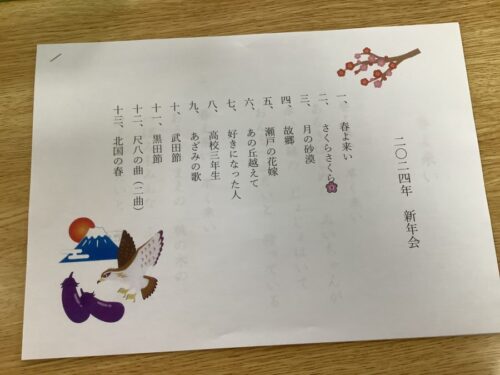 二〇二四年 新年会
一、春よ来い
二、さくらさくら
三、月の砂漠
四、故郷
五、瀬戸の花嫁
六、あの丘越えて
七、好きになった人
八、高校三年生
九、あざみの歌
十、武田節
十一、黒田節
十二、尺八の曲(二曲)
十三、北国の春